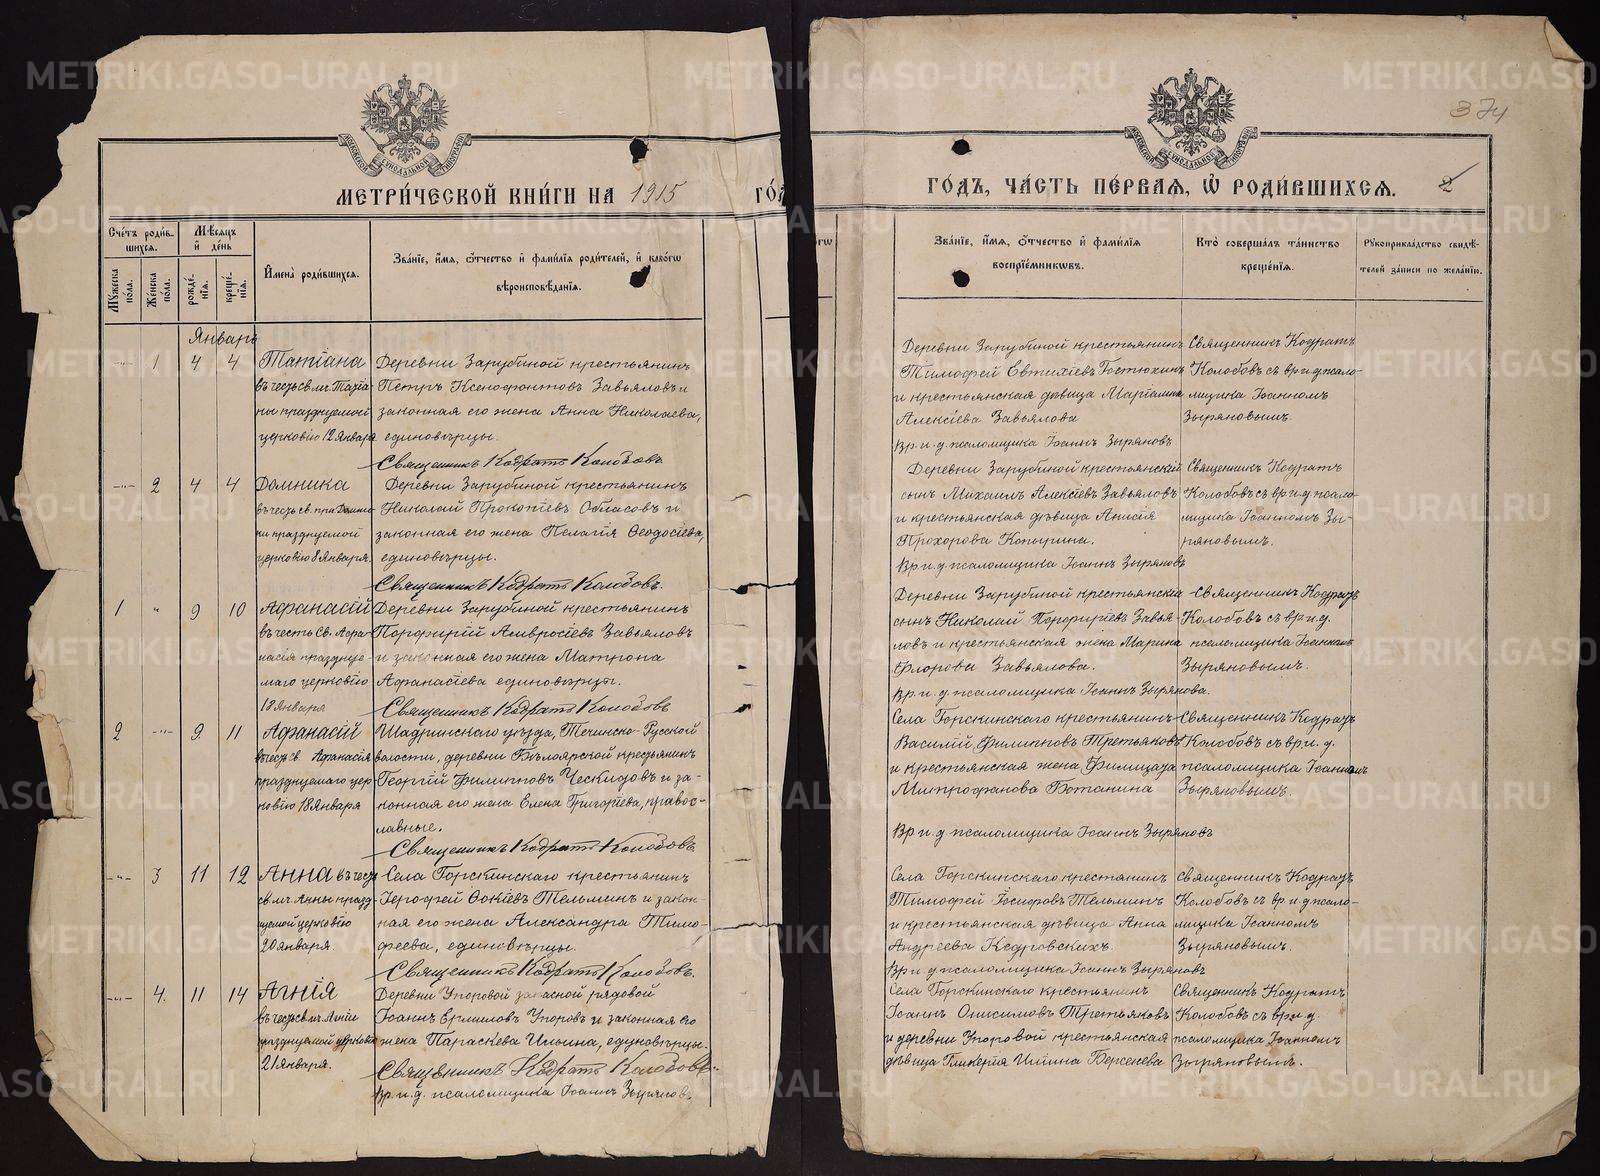 METRIKI.GASO-URAL.RU
374
МЕТРИ́ЧЕСКОЙ КНИ́ГИ НА 1915 ГО́Д
ГО́ДЪ, ЧА́СТЬ ПЕ́РВАѦ, Ѡ РОДИ́ВШИХСѦ. 2
Сче́тъ роди́в-
шихсѧ.
Мѣ́сѧцъ
и҆ де́нь
И҆мена̀ роди́вшихсѧ.
Зва́нїе, и҆́мѧ, ѻ҆́тчество и҆ фами́лїѧ роди́телей, и҆ како́гѡ
вѣроисповѣ́данїѧ.
Мꙋ́жеска по́ла.
Же́нска по́ла.
рожде́-
нїѧ.
креще́-
нїѧ.
Зва́нїе, и҆́мѧ, ѻ҆́тчество и҆ фами́лїѧ
воспрїе́мникѡвъ.
Кто̀ соверша́лъ та́инство
креще́нїѧ.
Рꙋкоприкла́дство свидѣ́-
телей за́писи по жела́нїю.
Январь
1 4 4 Татіана
въ честь св. мч. Татіа-
ны празднуемой
церковію 12 Января
Деревни Зарубиной крестьянинъ
Петръ Ксенофонтовъ Завьяловъ и
законная его жена Анна Николаева,
единовѣрцы.
Священникъ Кодратъ Колобовъ.
Деревни Зарубиной крестьянинъ
Тимофей Евтихіевъ Гостюхинъ
и крестьянская дѣвица Маріамна
Алексіева Завьялова
Вр. и. д. псаломщика Іоаннъ Зыряновъ
Священникъ Кодратъ
Колобовъ съ вр и д псало-
мщика Іоанномъ
Зыряновымъ.
2 4 4 Домника
въ честь св. пра Домни-
ки празднуемой
церковію 8 Января.
Деревни Зарубиной крестьянинъ
Николай Прокопіевъ Обласовъ и
законная его жена Пелагія Ѳеодосіева,
единовѣрцы.
Священникъ Кодратъ Колобовъ.
Деревни Зарубиной крестьянскій
сынъ Михаилъ Алексіевъ Завьяловъ
и крестьянская дѣвица Анисія
Прохорова Копырина.
Вр. и д псаломщика Іоаннъ Зыряновъ
Священникъ Кодратъ
Колобовъ съ вр и д псало-
мщика Іоанномъ Зы-
ряновымъ.
1 " 9 10 Афанасій
въ честь св. Афа-
насія празднуе-
маго церковію
18 Января
Деревни Зарубиной крестьянинъ
Порфирій Амвросіевъ Завьяловъ
и законная его жена Матрона
Афанасіева единовѣрцы.
Священникъ Кодратъ Колобовъ
Деревни Зарубиной крестьянскій
сынъ Николай Порфиріевъ Завья-
ловъ и крестьянская жена Марина
Флорова Завьялова.
Вр. и. д. псаломщика Іоаннъ Зырянова.
Священникъ Кодратъ
Колобовъ съ вр и. д.
псаломщика Іоанномъ
Зыряновымъ.
2 9 11 Афанасій
въ честь св. Афанасія
празднуемаго цер-
ковію 18 Января
Шадринскаго уѣзда, Теченско-Русской
волости, деревни Бѣлоярской крестьянинъ
Георгій Филипповъ Ческидовъ и за-
конная его жена Елена Григоріева, правос-
лавные.
Священникъ Кодратъ Колобовъ
Села Горскинскаго крестьянинъ
Василій Филипповъ Третьяковъ
и крестьянская жена Филицата
Митрофанова Ботанина
Вр и. д псаломщика Іоаннъ Зыряновъ
Священникъ Кодратъ
Колобовъ съ вр и. д.
псаломщика Іоанномъ
Зыряновымъ.
3 11 12 Анна въ честь
св. мч. Анны празд-
уемой церковію
20 января.
Села Горскинскаго крестьянинъ
Іерофей Фокіевъ Тельминъ и закон-
ная его жена Александра Тимо-
феева, единовѣрцы.
Священникъ Кодратъ Колобовъ.
Села Горскинскаго крестьянинъ
Тимофей Іосифовъ Тельминъ
и крестьянская дѣвица Анна
Андреева Кедровскихъ.
Вр и д псаломщика Іоаннъ Зыряновъ
Священникъ Кодратъ
Колобовъ съ вр и д псало-
мщика Іоанномъ
Зыряновымъ.
4. 11 14 Агнія
въ честь св. мч. Агніи
празднуемой церковію
21 января.
Деревни Упоровой запасной рядовой
Іоаннъ Ермиловъ Упоровъ и законная его
жена Параскева Ильина, единовѣрцы.
Священникъ Кодратъ Колобовъ
Вр. и. д. псаломщика Іоаннъ Зыряновъ
Села Горскинскаго крестьянинъ
Іоаннъ Онисимовъ Третьяковъ
и деревни Упоровой крестьянская
дѣвица Гликерія Ильина Берсенева
Священникъ Кодратъ
Колобовъ съ вр и. д.
псаломщика Іоанномъ
Зыряновымъ.